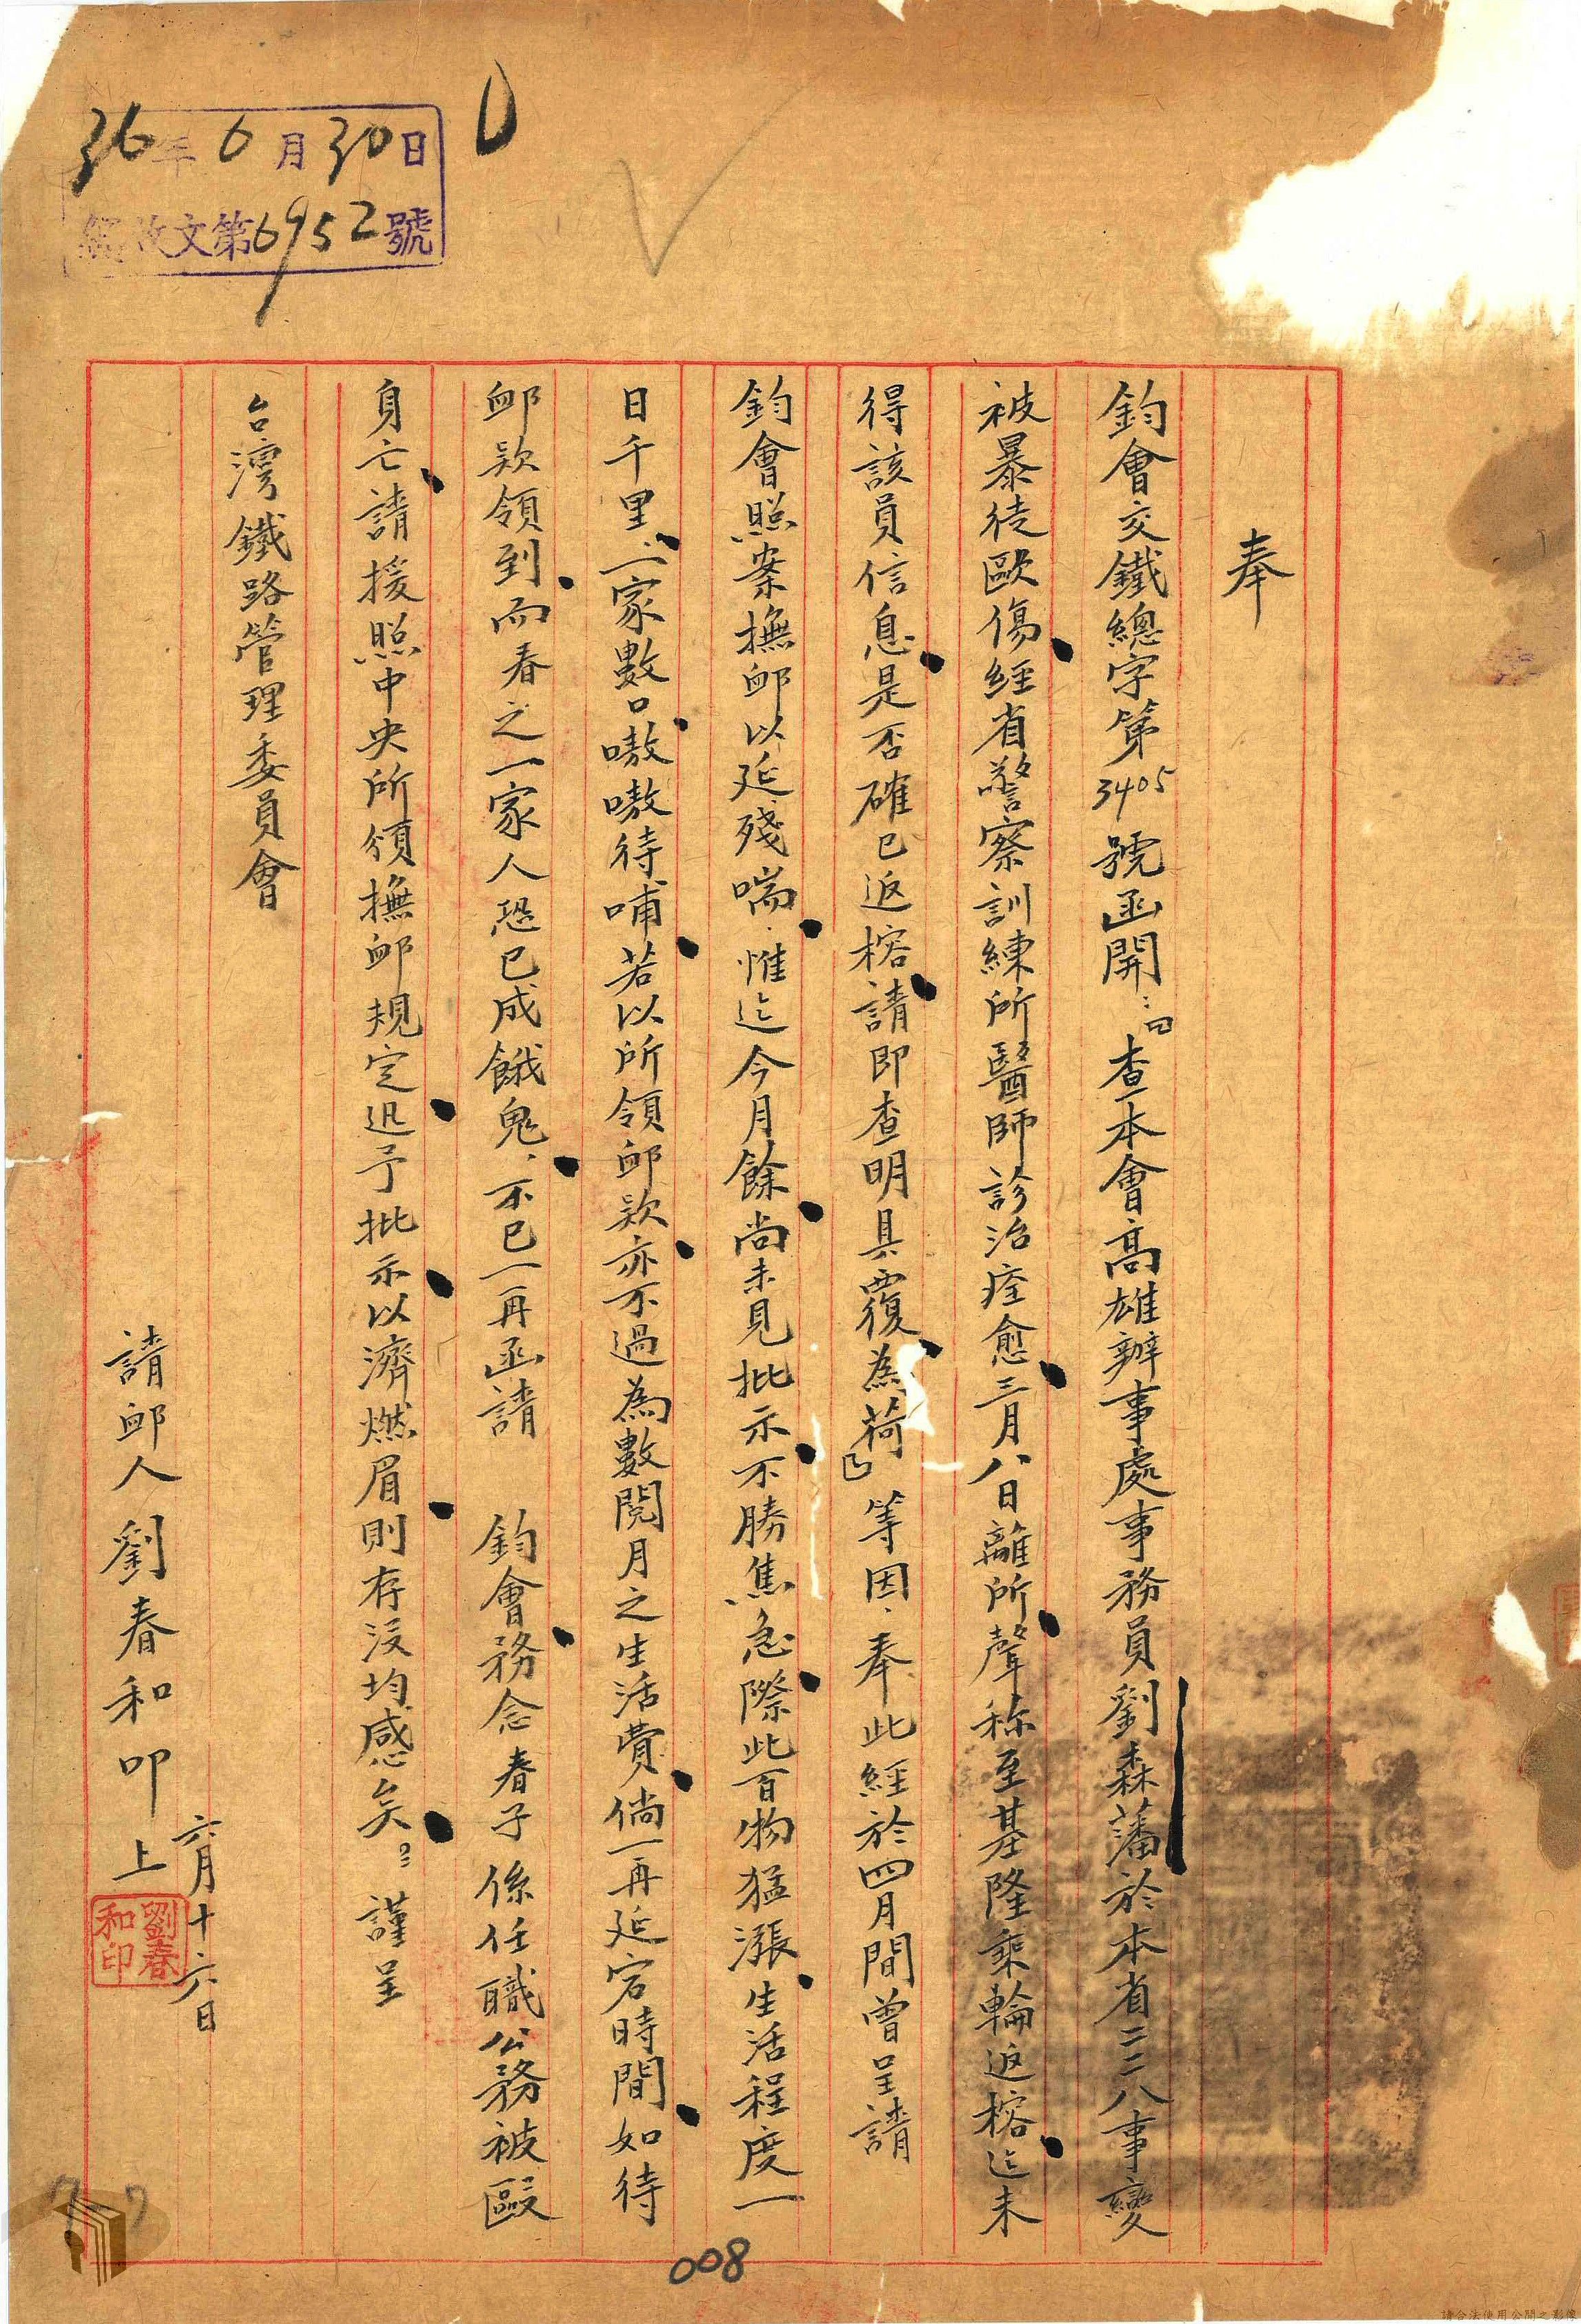 36年6月30日
收文第6952號
奉
鈞會交鐵總字第3405號函開：「查本會高雄辦事處事務員劉森藩於本省二二八事變
被暴徒歐傷經省警察訓練所醫師診治痊愈三月八日離所聲称至基隆乘輪返榕迄未
得該員信息是否確已返榕請即查明具覆為荷」等因、奉此經於四月間曾呈請
鈞會照案撫卹以延殘喘、惟迄今月餘尚未見批示不勝焦急際此百物猛漲生活程度一
日千里、一家數口嗷嗷待哺若以所領卹款亦不過為數閱月之生活費倘一再延宕時間如待
卹款領到而春之一家人恐已成餓鬼、不已一再函請　鈞會務念春子係任職公務被毆
身亡請援照中央所頒撫卹規定迅予批示以濟燃眉則存没均感矣。謹呈
台灣鐵路管理委員會
請卹人劉春和叩上
六月十六日
劉春和印
008
77
請合法使用公開之影像